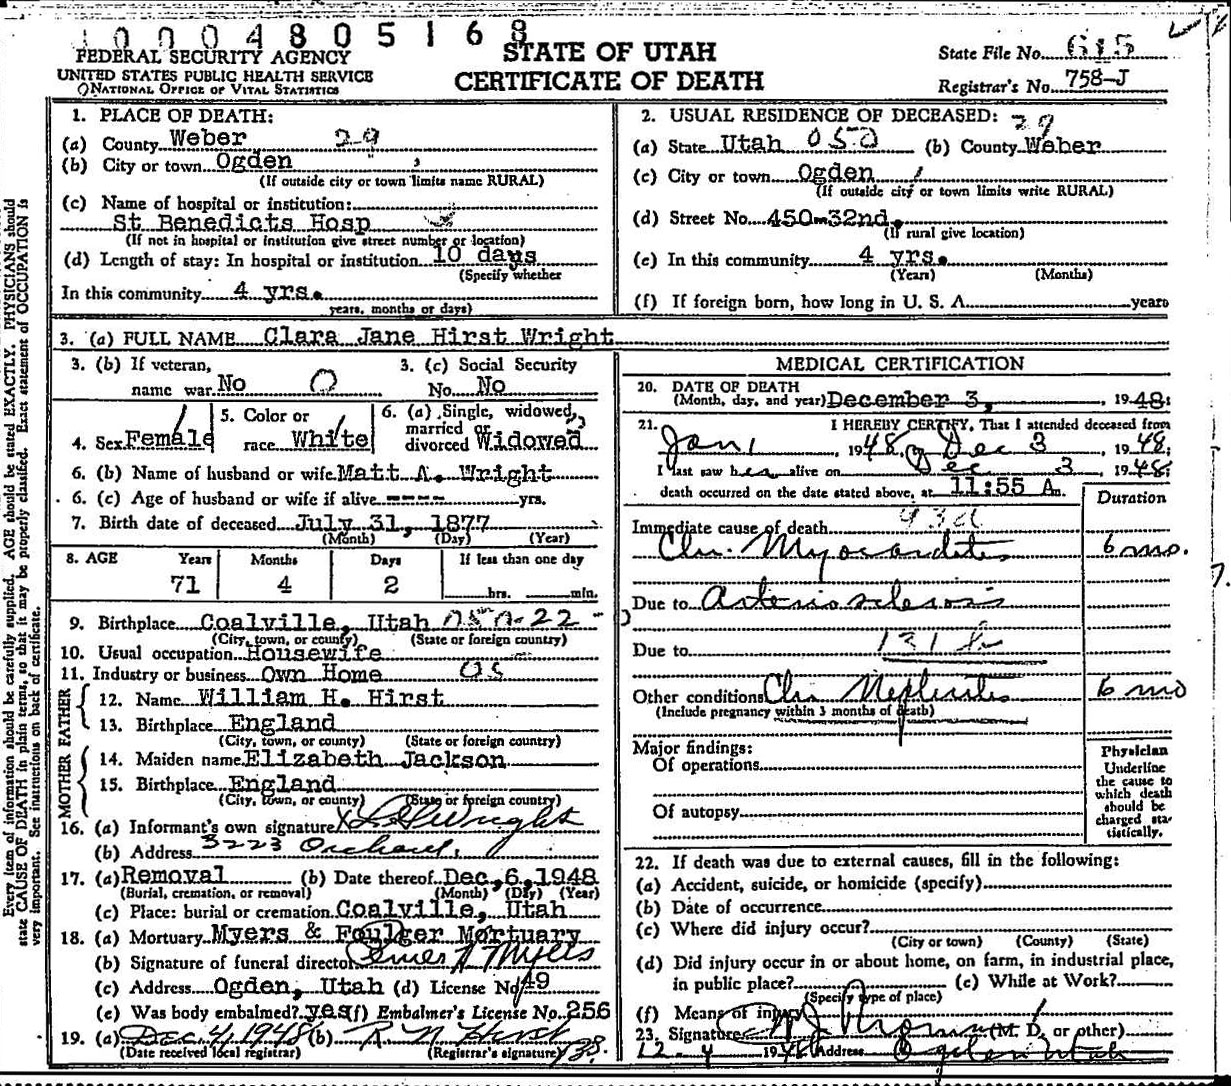 10004805168
FEDERAL SECURITY AGENCY
UNITED STATES PUBLIC HEALTH SERVICE
NATIONAL OFFICE OF VITAL STATISTICS
STATE OF UTAH
CERTIFICATE OF DEATH
State File No. 615
Registrar's No. 758-J
Every item of information should be carefully supplied. AGE should be stated EXACTLY. PHYSICIANS should
state CAUSE OF DEATH in plain terms, so that it may be properly classified. Exact statement of OCCUPATION is
very important. See instructions on back of certificate.
1. PLACE OF DEATH:
(a) County Weber 29
(b) City or town Ogden
(If outside city or town limits name RURAL)
(c) Name of hospital or institution:
St Benedicts Hosp
(If not in hospital or institution give street number or location)
(d) Length of stay: In hospital or institution 10 days
(Specify whether
In this community 4 yrs.
years, months or days)
2. USUAL RESIDENCE OF DECEASED: 29
(a) State Utah 050 (b) County Weber
(c) City or town Ogden
(If outside city or town limits write RURAL)
(d) Street No. 450-32nd,
(If rural give location)
(e) In this community 4 yrs.
(Years) (Months)
(f) If foreign born, how long in U. S. A. years
3. (a) FULL NAME Clara Jane Hirst Wright
3. (b) If veteran,
name war No 0
3. (c) Social Security
No. No
4. Sex Female
5. Color or
race White
6. (a) Single, widowed,
married or
divorced Widowed
6. (b) Name of husband or wife Matt A. Wright
6. (c) Age of husband or wife if alive ---- yrs.
7. Birth date of deceased July 31, 1877
(Month) (Day) (Year)
8. AGE Years Months Days If less than one day
71 4 2 hrs. min.
9. Birthplace Coalville, Utah
(City, town, or county) (State or foreign country)
10. Usual occupation Housewife
11. Industry or business Own Home
FATHER
12. Name William H. Hirst
13. Birthplace England
(City, town, or county) (State or foreign country)
MOTHER
14. Maiden name Elizabeth Jackson
15. Birthplace England
(City, town, or county) (State or foreign country)
16. (a) Informant's own signature X Wright
(b) Address 3223 Orchard.
17. (a) Removal (b) Date thereof Dec,6,1948
(Burial, cremation, or removal) (Month) (Day) (Year)
(c) Place: burial or cremation Coalville, Utah
18. (a) Mortuary Myers & Foulger Mortuary
(b) Signature of funeral director Myers
(c) Address Ogden, Utah (d) License No. 49
(e) Was body embalmed? yes (f) Embalmer's License No. 256
19. (a) Dec 4, 1948 (b) R N Hirst
(Date received local registrar) (Registrar's signature)
MEDICAL CERTIFICATION
20. DATE OF DEATH
(Month, day, and year) December 3, 1948
21. I HEREBY CERTIFY, That I attended deceased from
Jan 1, 1948, to Dec 3, 1948,
I last saw her alive on Dec 3 1948,
death occurred on the date stated above, at 11:55 A m.
Duration
Immediate cause of death 93d
Chr. Myocarditis 6 mo.
Due to Arteriosclerosis
Due to 131
Other conditions Chr Nephritis 6 mo
(Include pregnancy within 3 months of death)
Major findings:
Of operations
Of autopsy
Physician
Underline
the cause to
which death
should be
charged sta-
tistically.
22. If death was due to external causes, fill in the following:
(a) Accident, suicide, or homicide (specify)
(b) Date of occurrence
(c) Where did injury occur?
(City or town) (County) (State)
(d) Did injury occur in or about home, on farm, in industrial place,
in public place? (e) While at Work?
(Specify type of place)
(f) Means of injury
23. Signature (M. D. or other)
12-4 1948 Address Ogden Utah